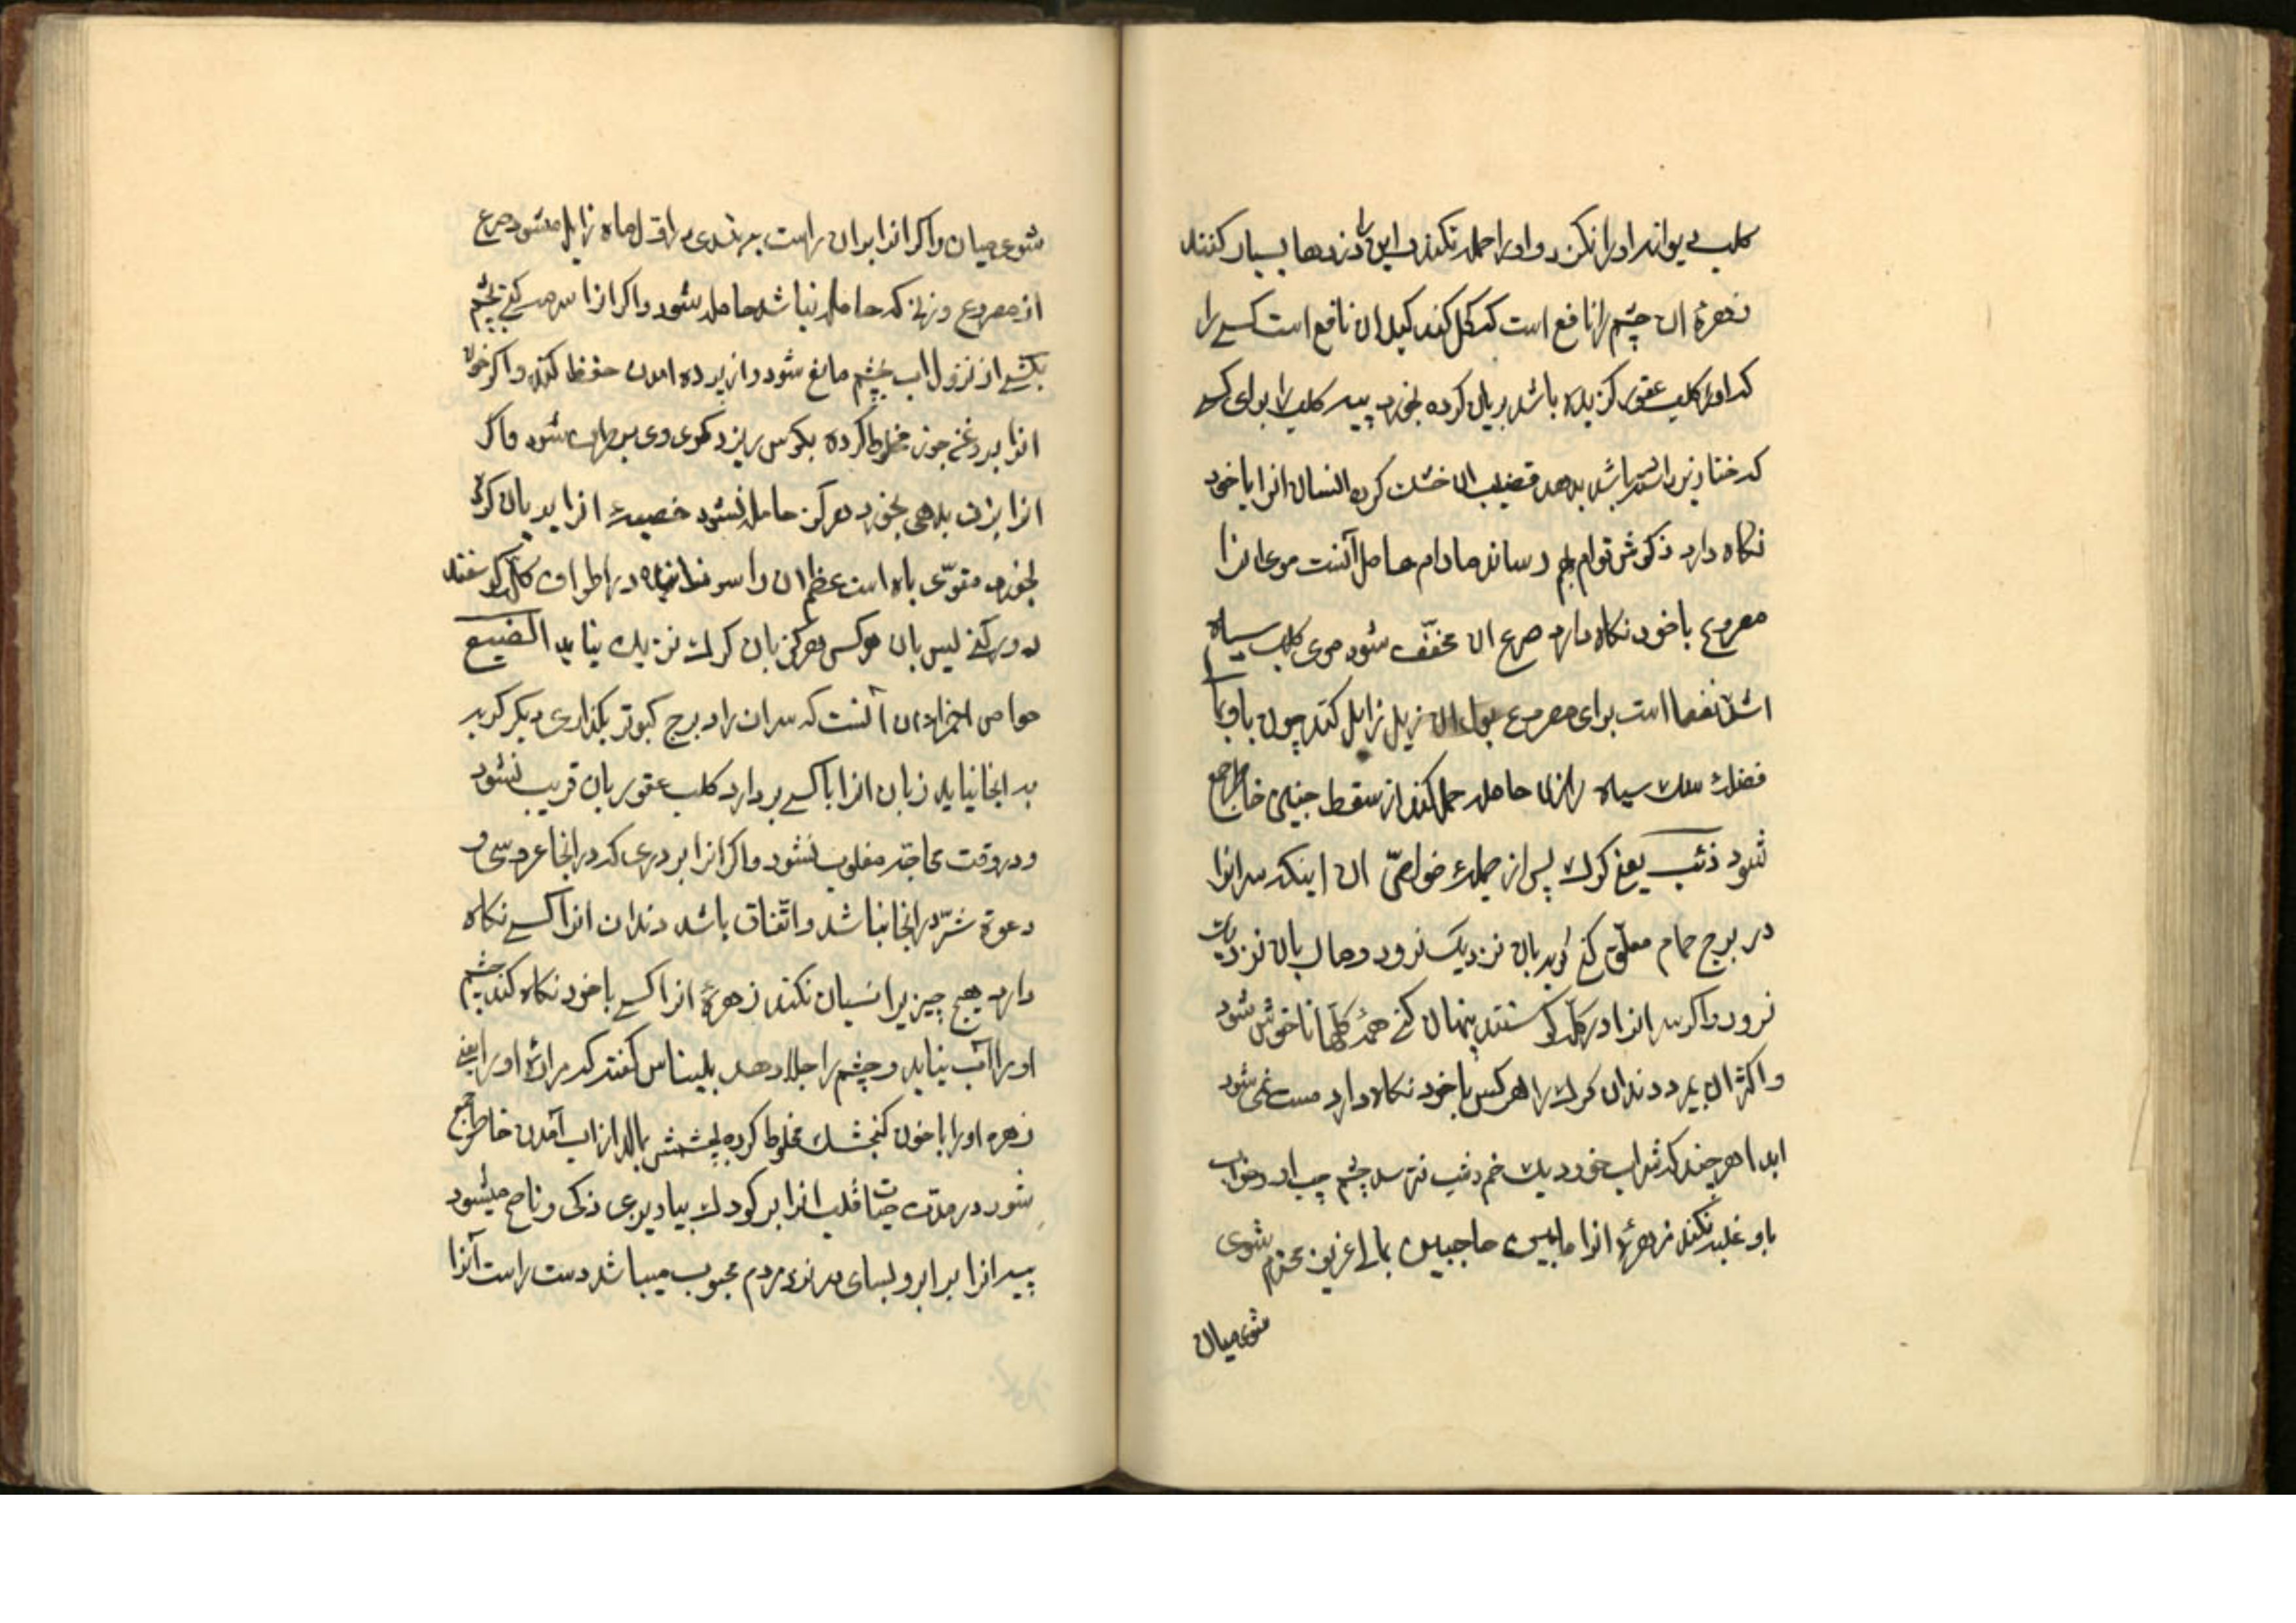 کلب دیوانه اورا نکزد و اورا حمله نکند و این را دزدها بسیار کنند
زهرهٔ ان چشم را نافع است که کحل کند کبد ان نافع است کسے را
که اورا کلب عقور کزیده باشد بریان کرده بخورد پیه کلب را برای کسے
که خنازیر داشته باشد بدهد قضیب ان خشک کرده انسان انرا با خود
نکاه دارد مادام حامل آنست موی انرا
مصروع با خود نکاه دارد صرع ان مخفّف شود موی کلب سیاه
اشدّ نفعا است برای مصروع بول ان زایل کند چون با
سک سیاه را زن حامله حمل کند از سقط جنین خاطر جمع
شود ذئب یعنی کرک پس از جملهٔ خواصّ ان اینکه سر انرا
در برج حمام معلّق کنے کربه بان نزدیک نرود و مار بان نزدیک
نرود واکر سر انرا در کلّه کوسفند پنهان کنے همهٔ کلّها ناخوش شود
و اکثر ان بمیرد دندان کرک را هر کس با خود نکاه دارد مست نمی شود
ابدا هر چند که شراب خورد یک خم ذئب نترسد چشم چپ او خواب
باو غلبه نکند زهرهٔ انرا مابین حاجبین بمالے عزیز و محترم شوی
شوی میان
شوی میان واکر انرا بران راست به بندی در اوّل ماه زایل میشود صرع
از مصروع و زنے که حامله نباشد حامله شود واکر انرا سرمه کنے بچشم
بکشے از نزول اب بچشم مانع شود و از پرده امدن حفظ کند واکر خون
انرا بروغن جوز مخلوط کرده بکوش ریزد کری وی بر طرف شود و اکر
انرا بزن بدهی بخورد هرکز حامله نشود خصیهٔ انرا بریان کرده
بخورد مقوّی باه است عظم ان را در اطراف کلّه کوسفند
دور کنے پس بان هرکس هرکز بان کرک نزدیک نیاید الضبع
خواص اجزاء ان آنست که سر ان را در برج کبوتر بکذاری دیکر کربه
به انجا نیاید زبان انرا با کسے بردارد کلب عقور بان قریب نشود
و در وقت محاجّه مغلوب نشود واکر انرا بر دری که در انجا عروسی و
دعوة شرّ در انجا نباشد و اتّفاق باشد دندان انرا کسے نکاه
دارد هیچ چیزیرا نسیان نکند زهرهٔ انرا کسے با خود نکاه کند چشم
اورا آب نیاید و چشم را جلا دهد بلیناس کفته که مرارهٔ اورا یعنے
زهره اورا با خون کنجشک مخلوط کرده بچشمش بمالد از اب آمدن خاطر جمع
شود در مدّت حیات قلب انرا بر کودک بیاویزی ذکی و ناصح میشود
پیه انرا بر ابرو بسای در نزد مردم محبوب میباشد دست راست آنرا